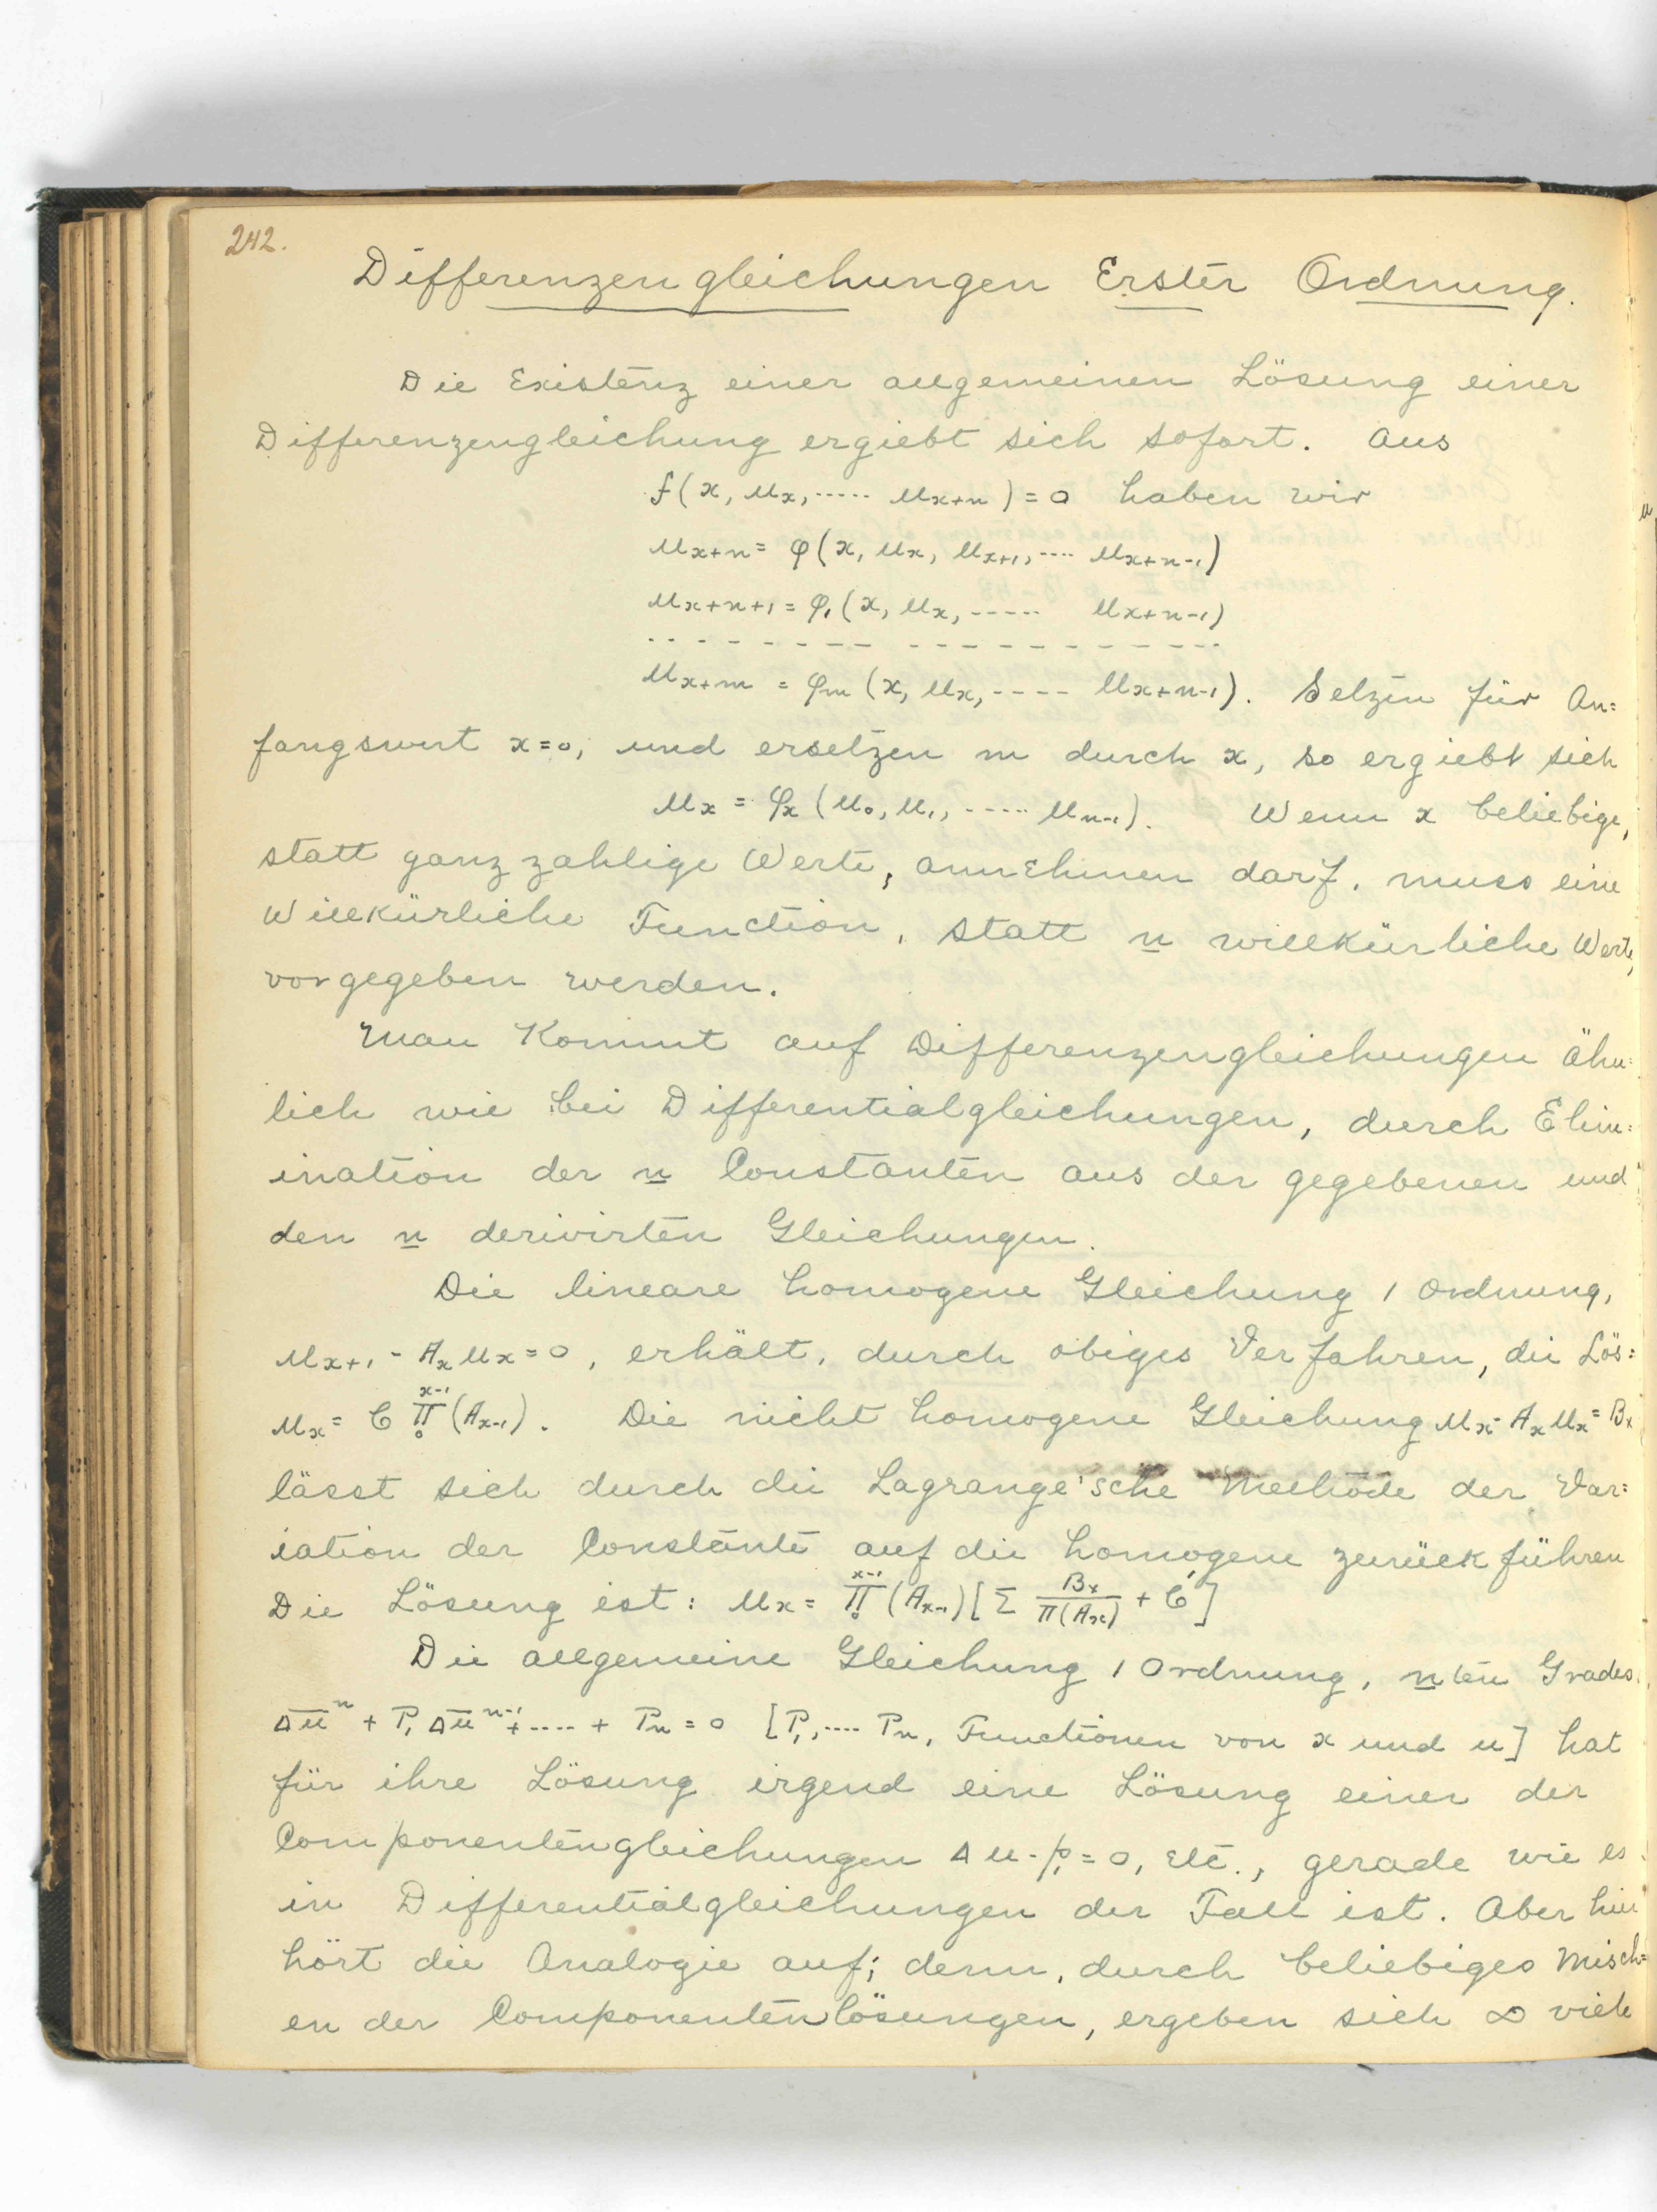 242.
Differenzengleichungen Erster Ordnung.
Die Existenz einer allgemeinen Lösung einer
Differenzengleichung ergiebt sich sofort. Aus
f(x, u_x, ..... u_{x+n}) = 0 haben wir
u_{x+n} = φ(x, u_x, u_{x+1}, .... u_{x+n-1})
u_{x+n+1} = φ_1(x, u_x, ----- u_{x+n-1})
u_{x+m} = φ_m(x, u_x, ---- u_{x+n-1}). Setzen für An=
fangswert x=0, und ersetzen m durch x, so ergiebt sich
u_x = φ_x(u_0, u_1, ..... u_{n-1}). Wenn x beliebige,
statt ganz zahlige Werte, annehmen darf, muss eine
Willkürliche Function, statt n willkürliche Werte,
vorgegeben werden.
Man Kommt auf Differenzengleichungen ähn=
lich wie bei Differentialgleichungen, durch Elim=
ination der n Constanten aus der gegebenen und
den n derivirten Gleichungen.
Die lineare homogene Gleichung 1 Ordnung,
u_{x+1} - A_x u_x = 0, erhält, durch obiges Verfahren, die Lös=
u_x = C Π_0^{x-1} (A_{x-1}). Die nicht homogene Gleichung u_x - A_x u_x = B_x
lässt sich durch die Lagrange'sche Methode der Var=
iation der Constante auf die homogene zurückführen
Die Lösung ist: u_x = Π_0^{x-1} (A_{x-1}) [Σ B_x / Π(A_x) + C]
Die allgemeine Gleichung 1 Ordnung, nten Grades,
Δu^n + P_1 Δu^{n-1} + .... + P_n = 0 [P_1, .... P_n, Functionen von x und u] hat
für ihre Lösung irgend eine Lösung einer der
Componentengleichungen Δu - p_1 = 0, etc., gerade wie es
in Differentialgleichungen der Fall ist. Aber hier
hört die Analogie auf; denn, durch beliebiges Misch=
en der Componentenlösungen, ergeben sich ∞ viele